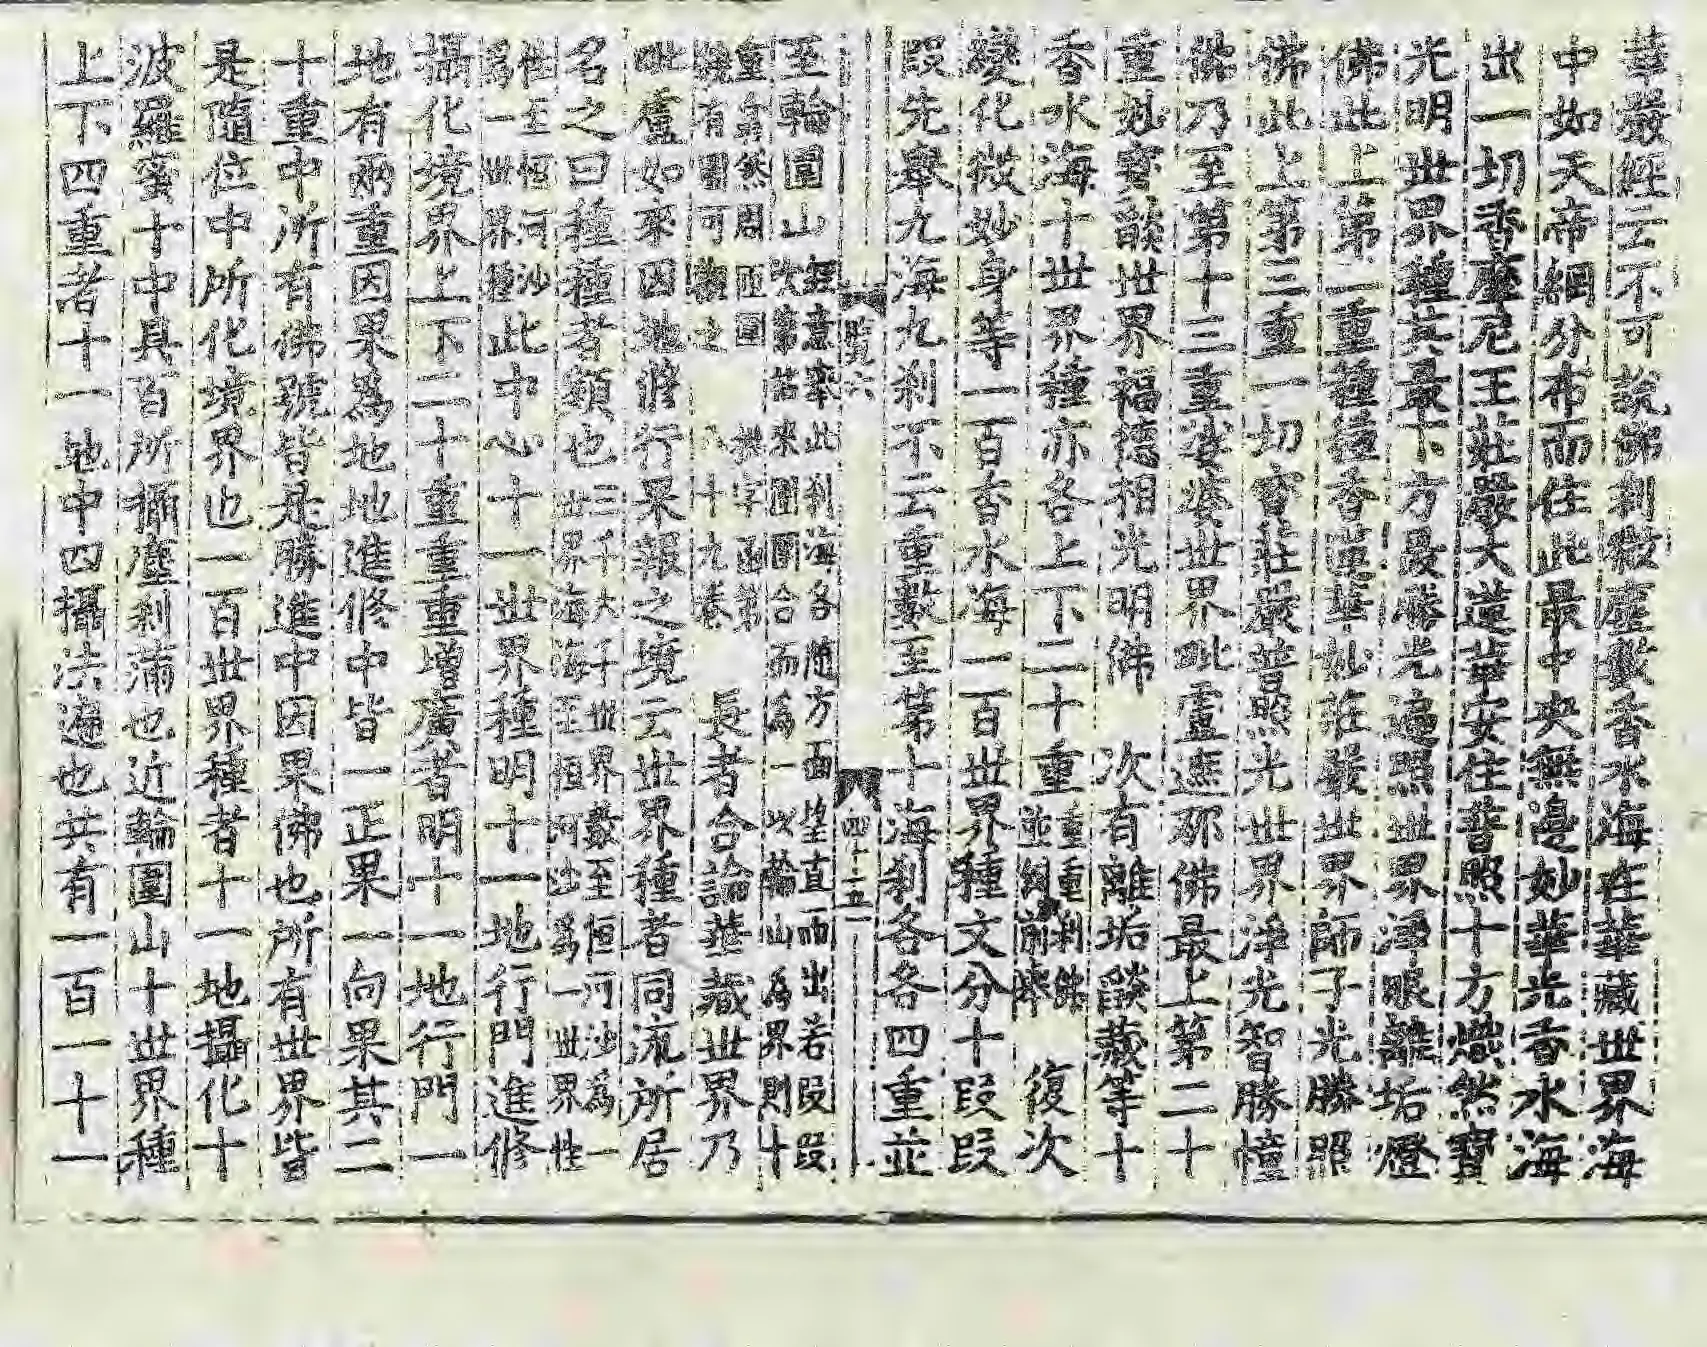 華嚴經云不可說佛剎微塵數香水海在華藏世界海
中如天帝網分布而住此最中央無邊妙華光香水海
出一切香摩尼王莊嚴大蓮華安住普照十方熾然寶
光明世界種其最下方最勝光遍照世界淨眼離垢燈
佛此上第二重種種香蓮華妙莊嚴世界師子光勝照
佛此上第三重一切寶莊嚴普照光世界淨光智勝幢
佛乃至第十三重娑婆世界毗盧遮那佛最上第二十
重妙寶燄世界福德相光明佛　次有離垢燄藏等十
香水海十世界種亦各上下二十重重重剎佛並煩前舉　復次
變化微妙身等一百香水海一百世界種文分十段段
段先舉九海九剎不云重數至第十海剎各各四重並
四十五
至輪圍山經意率此剎海各隨方面望直而出若段段次第皆來圍圓合而為一以輪山為界則十
重亦然周匝圍繞有圖可觀之　拱字函第八十九卷　長者合論華藏世界乃
毗盧如來因地修行果報之境云世界種者同流所居
名之曰種種者類也三千大千世界數至恒河沙為一世界海海至恒河沙為一世界性
性至恒河沙為一世界種此中心十一世界種明十一地行門進修
攝化境界上下二十重重重增廣者明十一地行門一
地有兩重因果為地地進修中皆一正果一向果其二
十重中所有佛號皆是勝進中因果佛也所有世界皆
是隨位中所化境界也一百世界種者十一地攝化十
波羅蜜十中具百所攝塵剎滿也近輪圍山十世界種
上下四重者十一地中四攝法遍也共有一百一十一